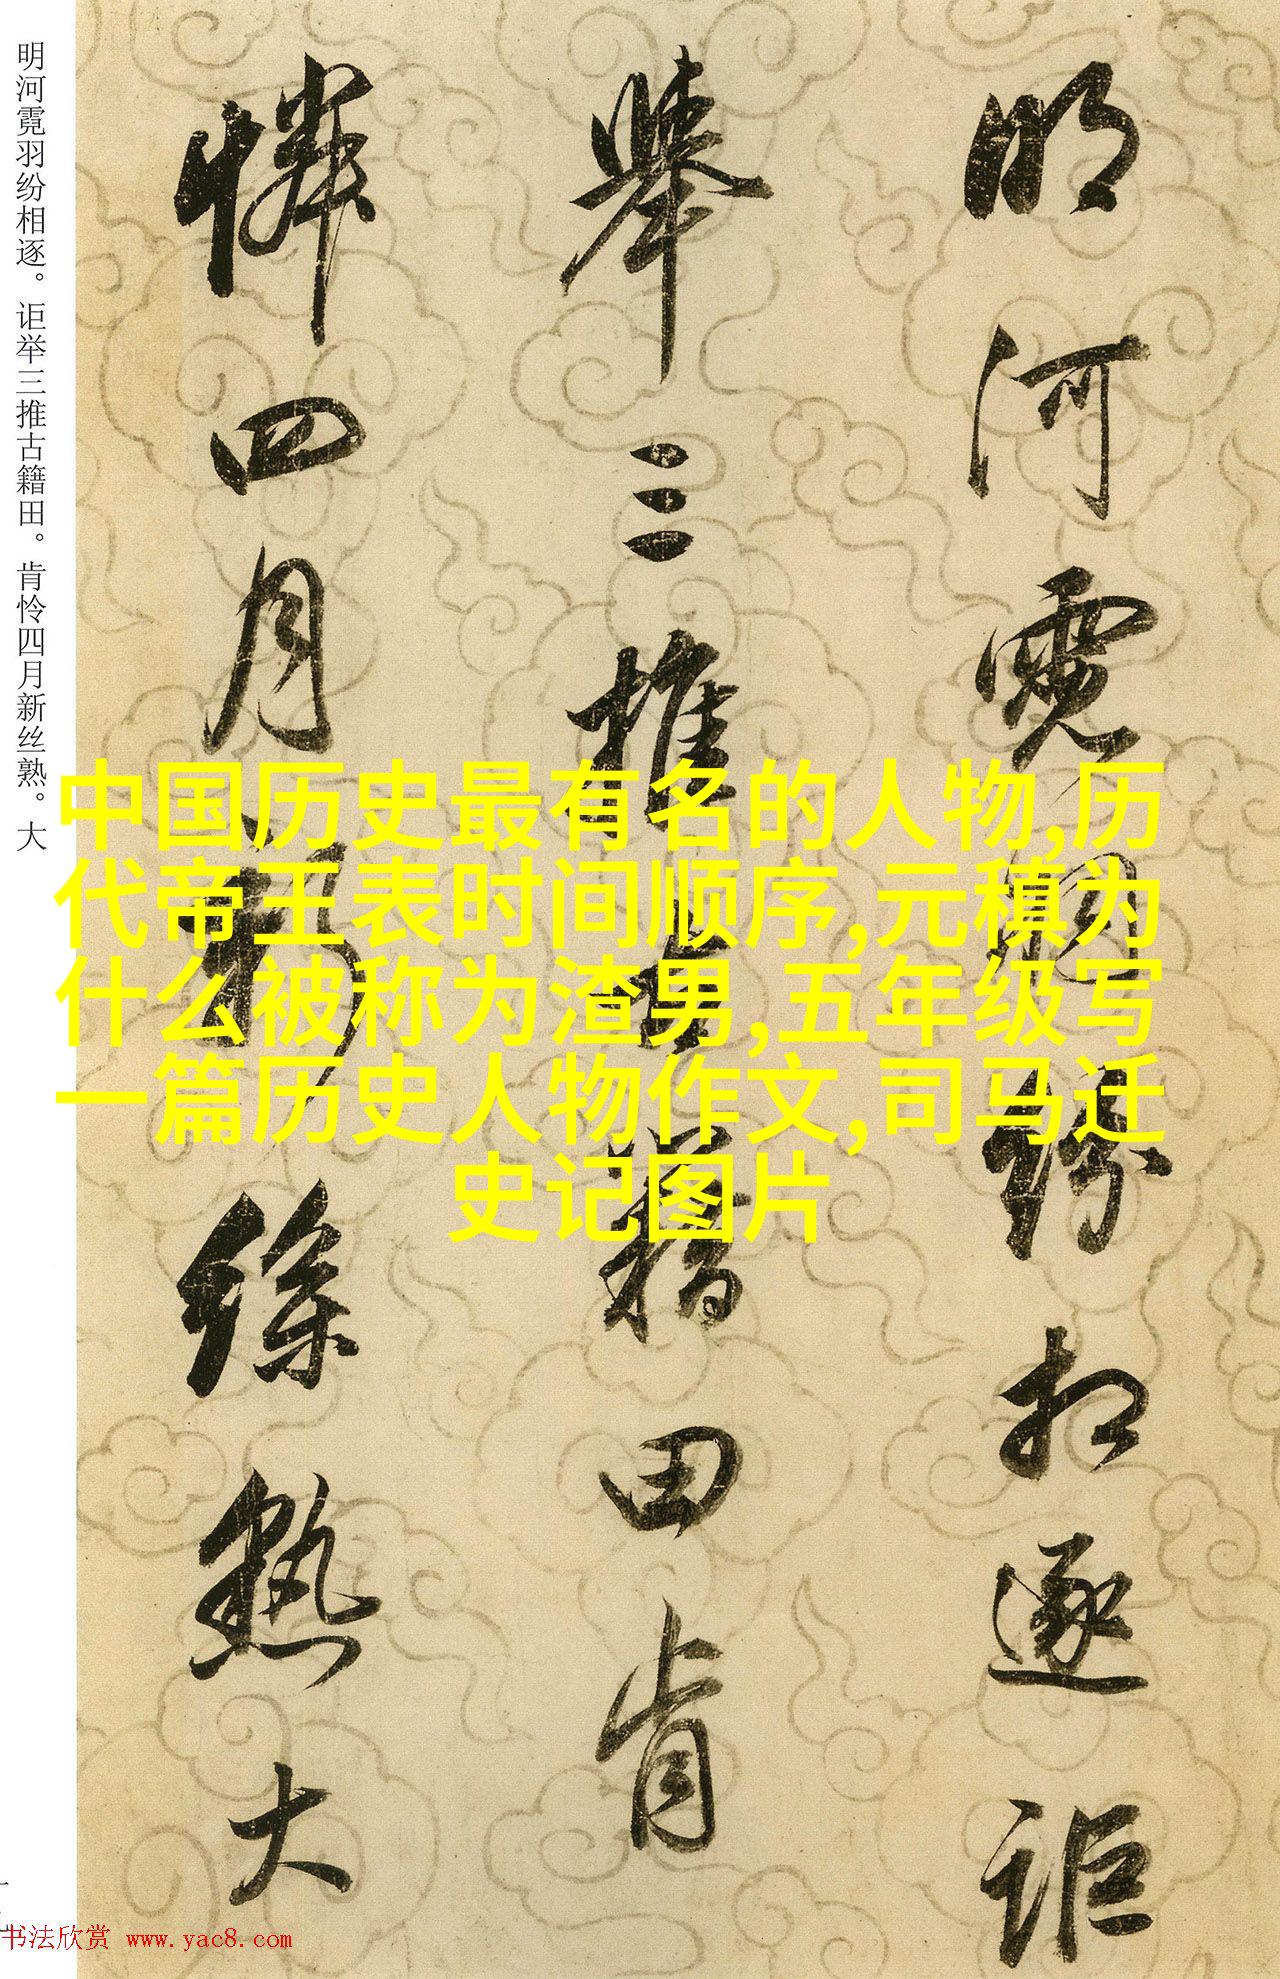 明河霓羽纷相逐。讵举三推古籍田。肯怜四月新丝熟。大
明河霓羽纷相逐讵
举三推古籍田肯
怜四月新丝熟大
中国历史最有名的人物,历
代帝王表时间顺序,元稹为
什么被称为渣男,五年级写
一篇历史人物作文,司马迁
史记图片
书法欣赏 www.yac8.com